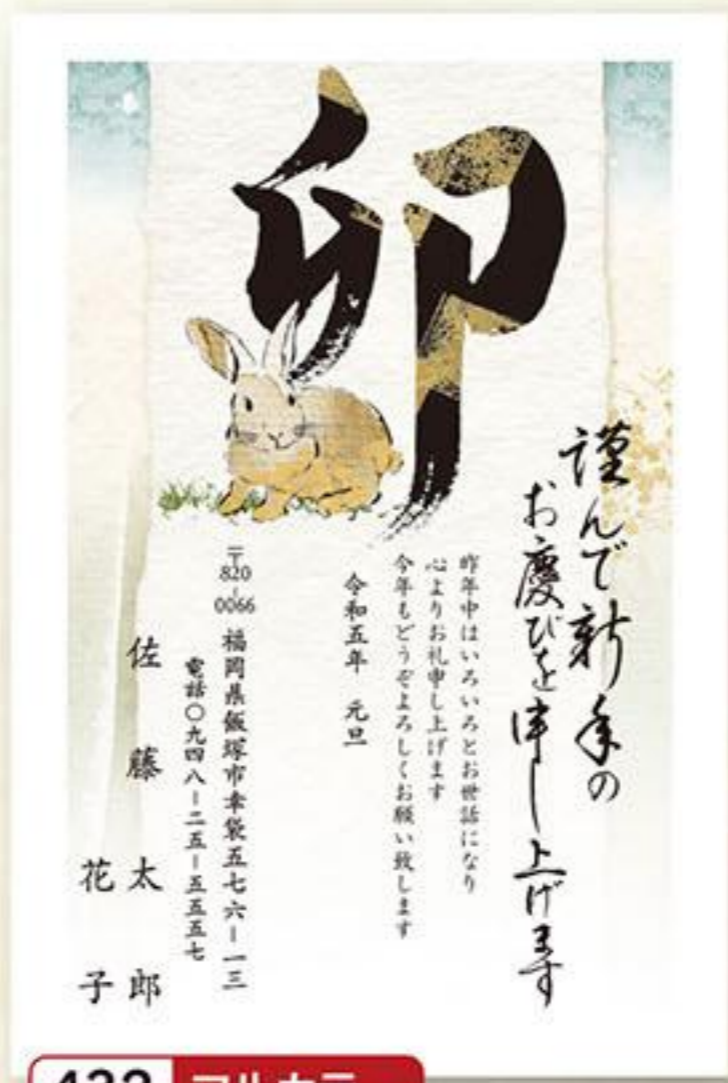 卯
謹んで新年の
お慶びを申し上げます
昨年中はいろいろとお世話になり
心よりお礼申し上げます
今年もどうぞよろしくお願い致します
令和五年 元旦
〒820-0066 福岡県飯塚市幸袋五七六-一三
電話〇九四八-二五-五五五七
佐藤 太郎
花子